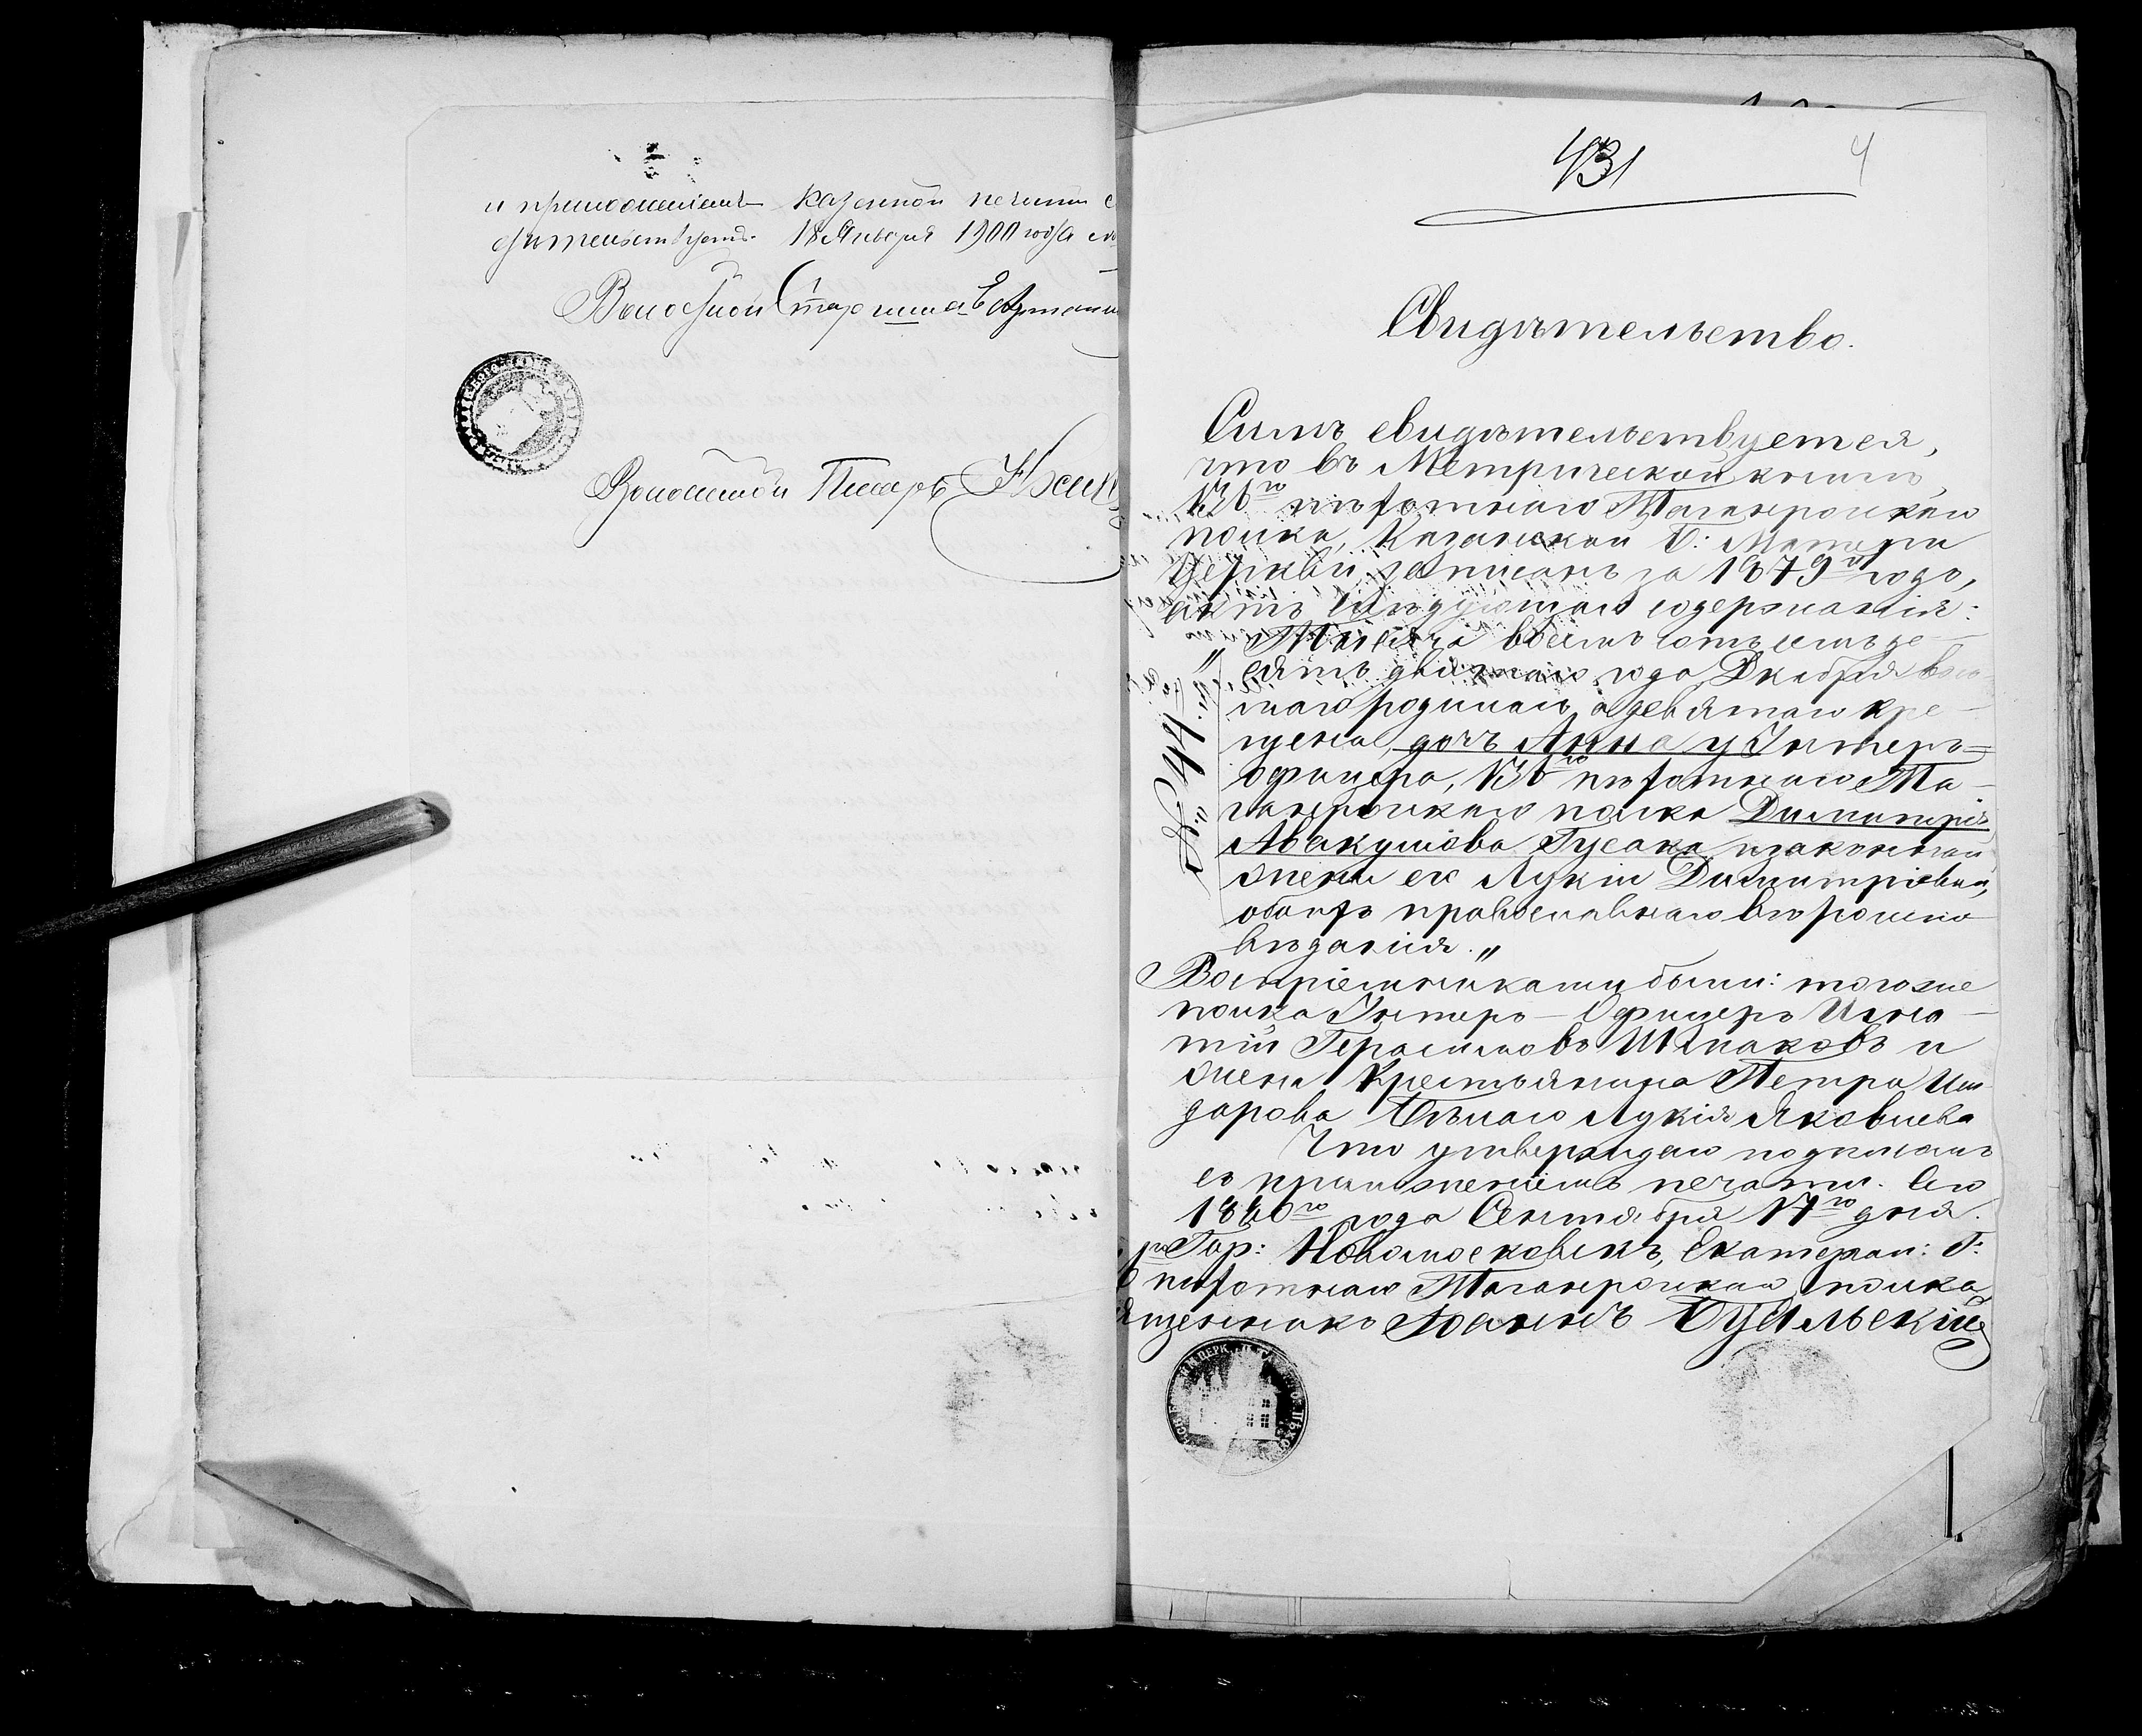 и приложениемъ казенной печати
18 Января 1900 года
Волостной Старшина
Волостной Писарь
431
4
Свидѣтельство.
Симъ свидѣтельствуется,
что въ Метрической книгѣ,
136го пѣхотнаго Таганрогскаго
полка, Казанской Б: Матери
Церкви, записанъ за 1879й годъ,
актъ слѣдующаго содержанія:
„Тысяча восемь сотъ семьде-
сятъ девятаго года Декабря
маго родилась, а девятаго кре-
щена, дочь Анна у Унтеръ=
офицера, 136го пѣхотнаго Та-
ганрогскаго полка Димитрія
Авакумова Гусака, изаконной
жены его Лукіи Димитріевой,
обоихъ православнаго вѣроиспо-
вѣданія.„
Воспріемниками были: тогоже
полка Унтеръ-Офицеръ Игна-
тій Герасимовъ Шпаковъ и
жена Крестьянина Петра Иси-
дорова Бѣлаго Лукія Яковлева
Что утверждаю подписомъ
съ приложеніемъ печати.
1880го года Сентября 17го дня.
Гор: Новомосковскъ, Екатерин: Г:
пѣхотнаго Таганрогскаго полка
щенникъ Іоаннъ